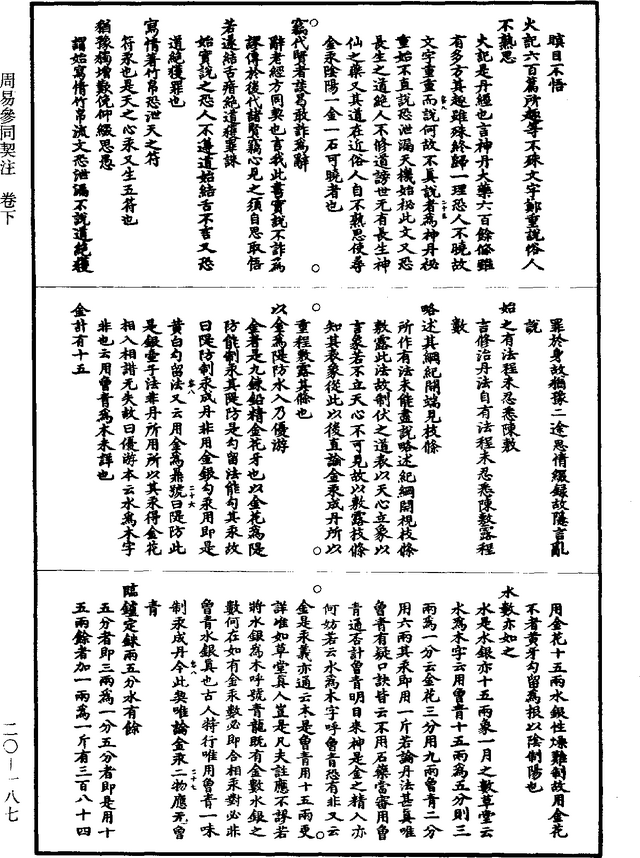 瞑目不悟
火記六百篇所趣等不殊文字鄭重說俗人
不熟思
火記是丹經也言神丹大藥六百餘條雖
有多方其趣雖殊終歸一理恐人不曉故
文字重疊而說何故不具說者為神丹祕
重始不直說恐泄漏天機始祕此文又恐
長生之道絕人不修道謗世无有長生神
仙之藥又其道在近俗人自不熟思使尋
金汞陰陽一金一石可曉者也
竊代賢者談曷敢詐為辭
辭者經方同契也言我此書實說不詐為
謬傳於後代諸賢竊心見之須自思取悟
若遂結舌瘖絕道獲罪誅
始實說之恐人不遵道始結舌不言又恐
道絕獲罪也
寫情著竹帛恐泄天之符
符汞也是天之心汞又生五符也
猶豫獨增歎俛仰綴思愚
謂始寫情竹帛流文恐泄漏不說道絕獲
罪於身故猶豫二途思情綴錄故隱言亂
說
始之有法程未忍悉陳敷
言修治丹法自有法程未忍悉陳敷露程
數
略述其綱紀開端見枝條
所作有法未能盡說略述紀綱開視枝條
敷露此法故制伏之道表以天心立象以
言象若不立天心不可見故以敷露枝條
知其衰象從此以後直論金汞成丹所以
重程敷露其條也
以金為隄防水入乃優游
金者是九鍊鉛精金花牙也以金花為隄
防能制汞其隄防是勾留法能勾其汞故
曰隄防制汞成丹非用金銀勾汞用即是
黃白勾留法又云用金為鼎號曰隄防此
是銀壺子法非丹所用所以其汞得金花
相入相諧无失故曰優游本云水為木字
非也云用曾青為木未詳也
金計有十五
用金花十五兩水銀性燥難制故用金花
不者黃牙勾留為根以陰制陽也
水數亦如之
水是水銀亦十五兩象一月之數草堂云
水為木字云用曾青十五兩為五分則三
兩為一分云金花三分用九兩曾青二分
用六兩其汞即用一斤若論丹法甚真唯
曾青有疑口訣皆云不用石藥當審用曾
青通否計曾青明目來神是金之精人亦
何妨若云水為木字呼曾青恐有非又云
金是汞義亦通云本是曾青用十五兩更
詳唯如草堂真人豈是凡夫註應不謬若
將水銀為木呼號青龍既有金數水銀之
數何在如有金汞數必即合相汞對必非
曾青水銀真也古人特行唯用曾青一味
制汞成丹今此契唯論金汞二物應无曾
青
臨鑪定銖兩五分水有餘
五分者即三兩為一分五分者即是用十
五兩餘者加一兩為一斤有三百八十四
周易參同契注　卷下
二〇—一八七